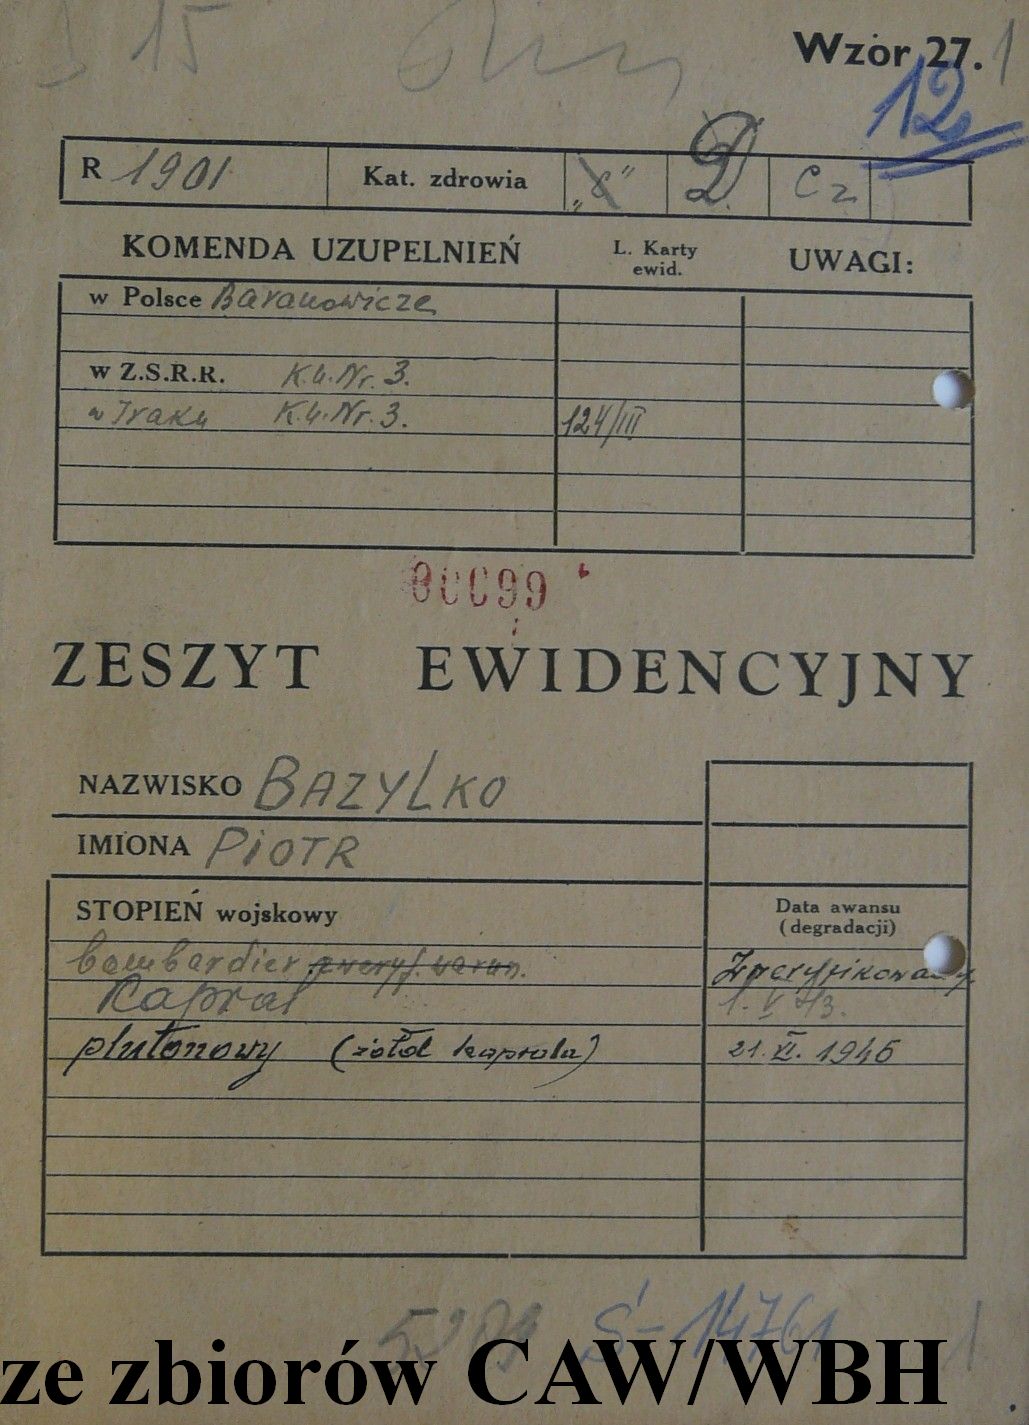 15
Wzór 27. 1
12
R 1901 Kat. zdrowia „C” D Cz
KOMENDA UZUPEŁNIEŃ L. Karty ewid. UWAGI:
w Polsce Baranowicze
w Z.S.R.R. K.U. Nr. 3.
w Iraku K.U. Nr. 3. 124/III
00099
ZESZYT EWIDENCYJNY
NAZWISKO BAZYLKO
IMIONA PIOTR
STOPIEŃ wojskowy Data awansu (degradacji)
bombardier zweryf. warun. Zweryfikowany
Kapral 1. V 43.
plutonowy (żołd kaprala) 21. XI. 1946
Ś-14761
ze zbiorów CAW/WBH